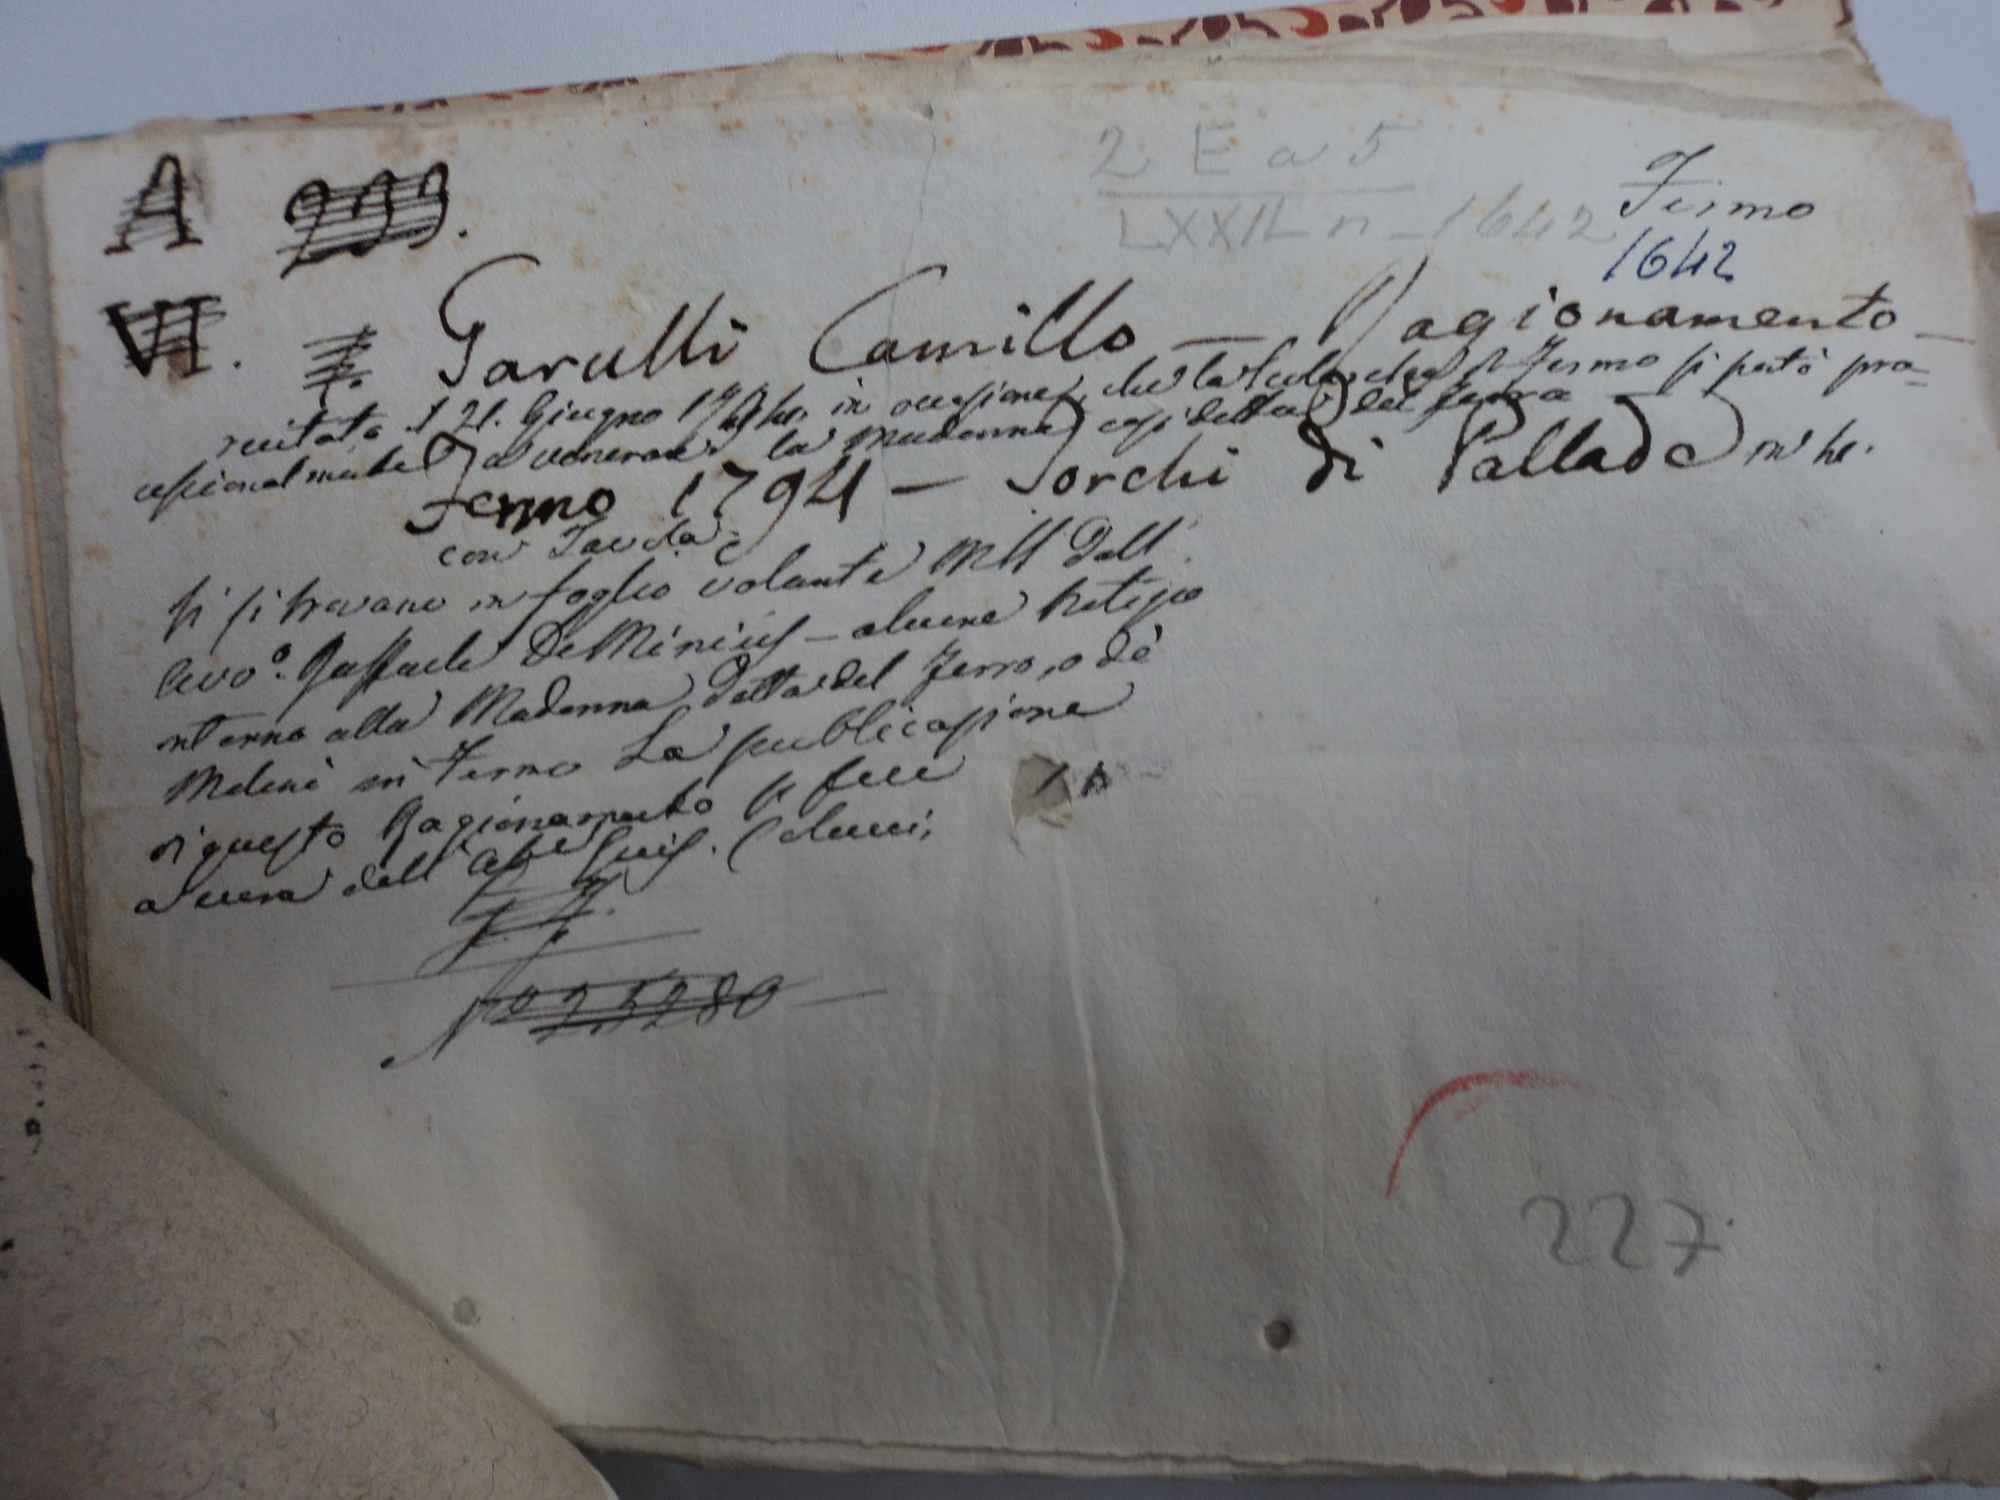 2 E a 5
LXXII n - 1642
Fermo
1642
A 299.
VI.
Garulli Camillo — Ragionamento —
recitato il 21. Giugno in occasione, che la di Fermo si portò pro=
cessionalmente a venerare la Madonna così detta del Ferro
Fermo 1794 — Torchi di Pallade in
con Tavola
Vi si trovano in foglio volante Mss dall'
Avvo. Raffaele De Minicis — alcune Notizie
intorno alla Madonna detta del Ferro, o dè
Meloni in Fermo La publicasione
di questo Ragionamento si fece
a cura dell' Abe Colucci,
No 23280
227